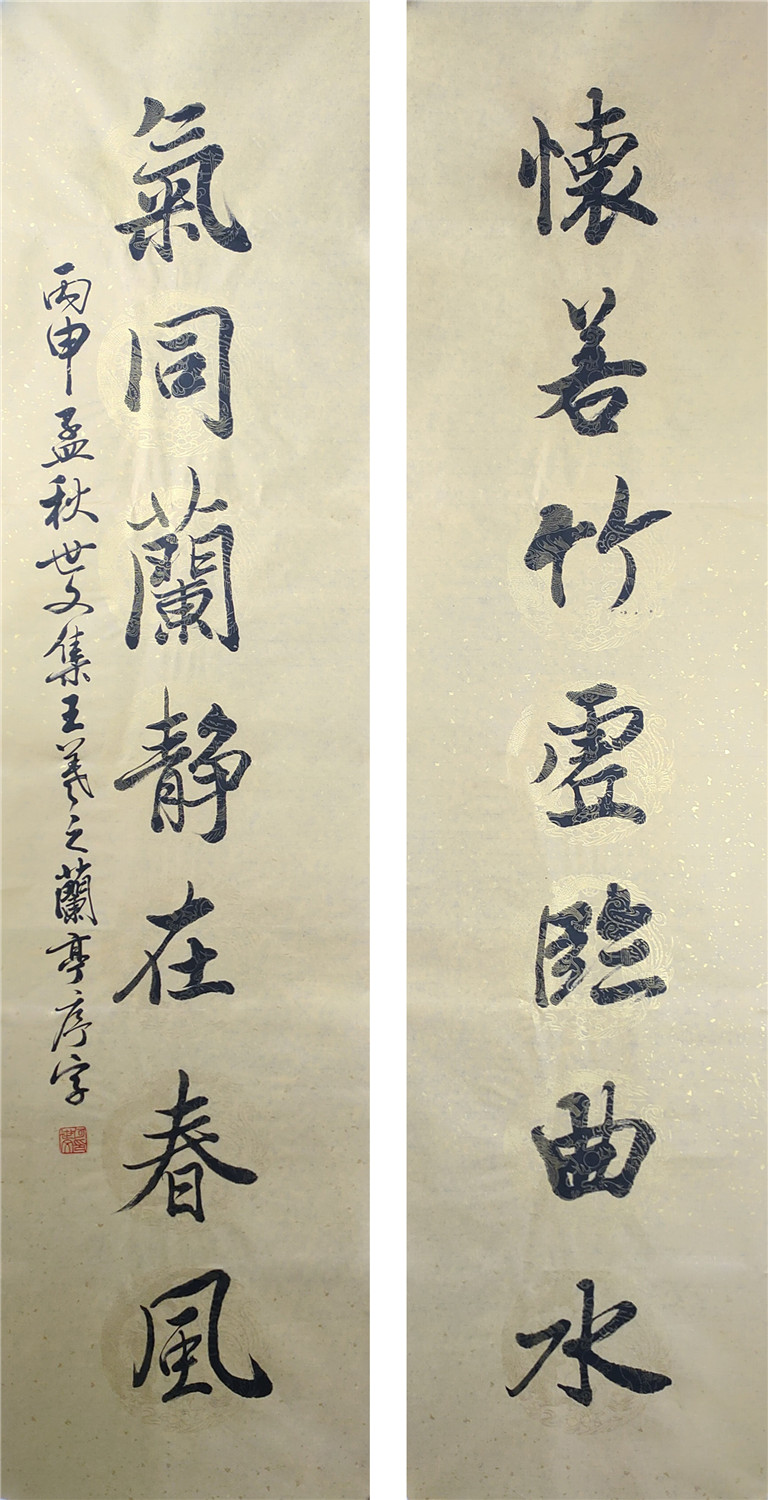 懐若竹虚臨曲水
氣同蘭静在春風
丙申孟秋世文集王羲之蘭亭序字